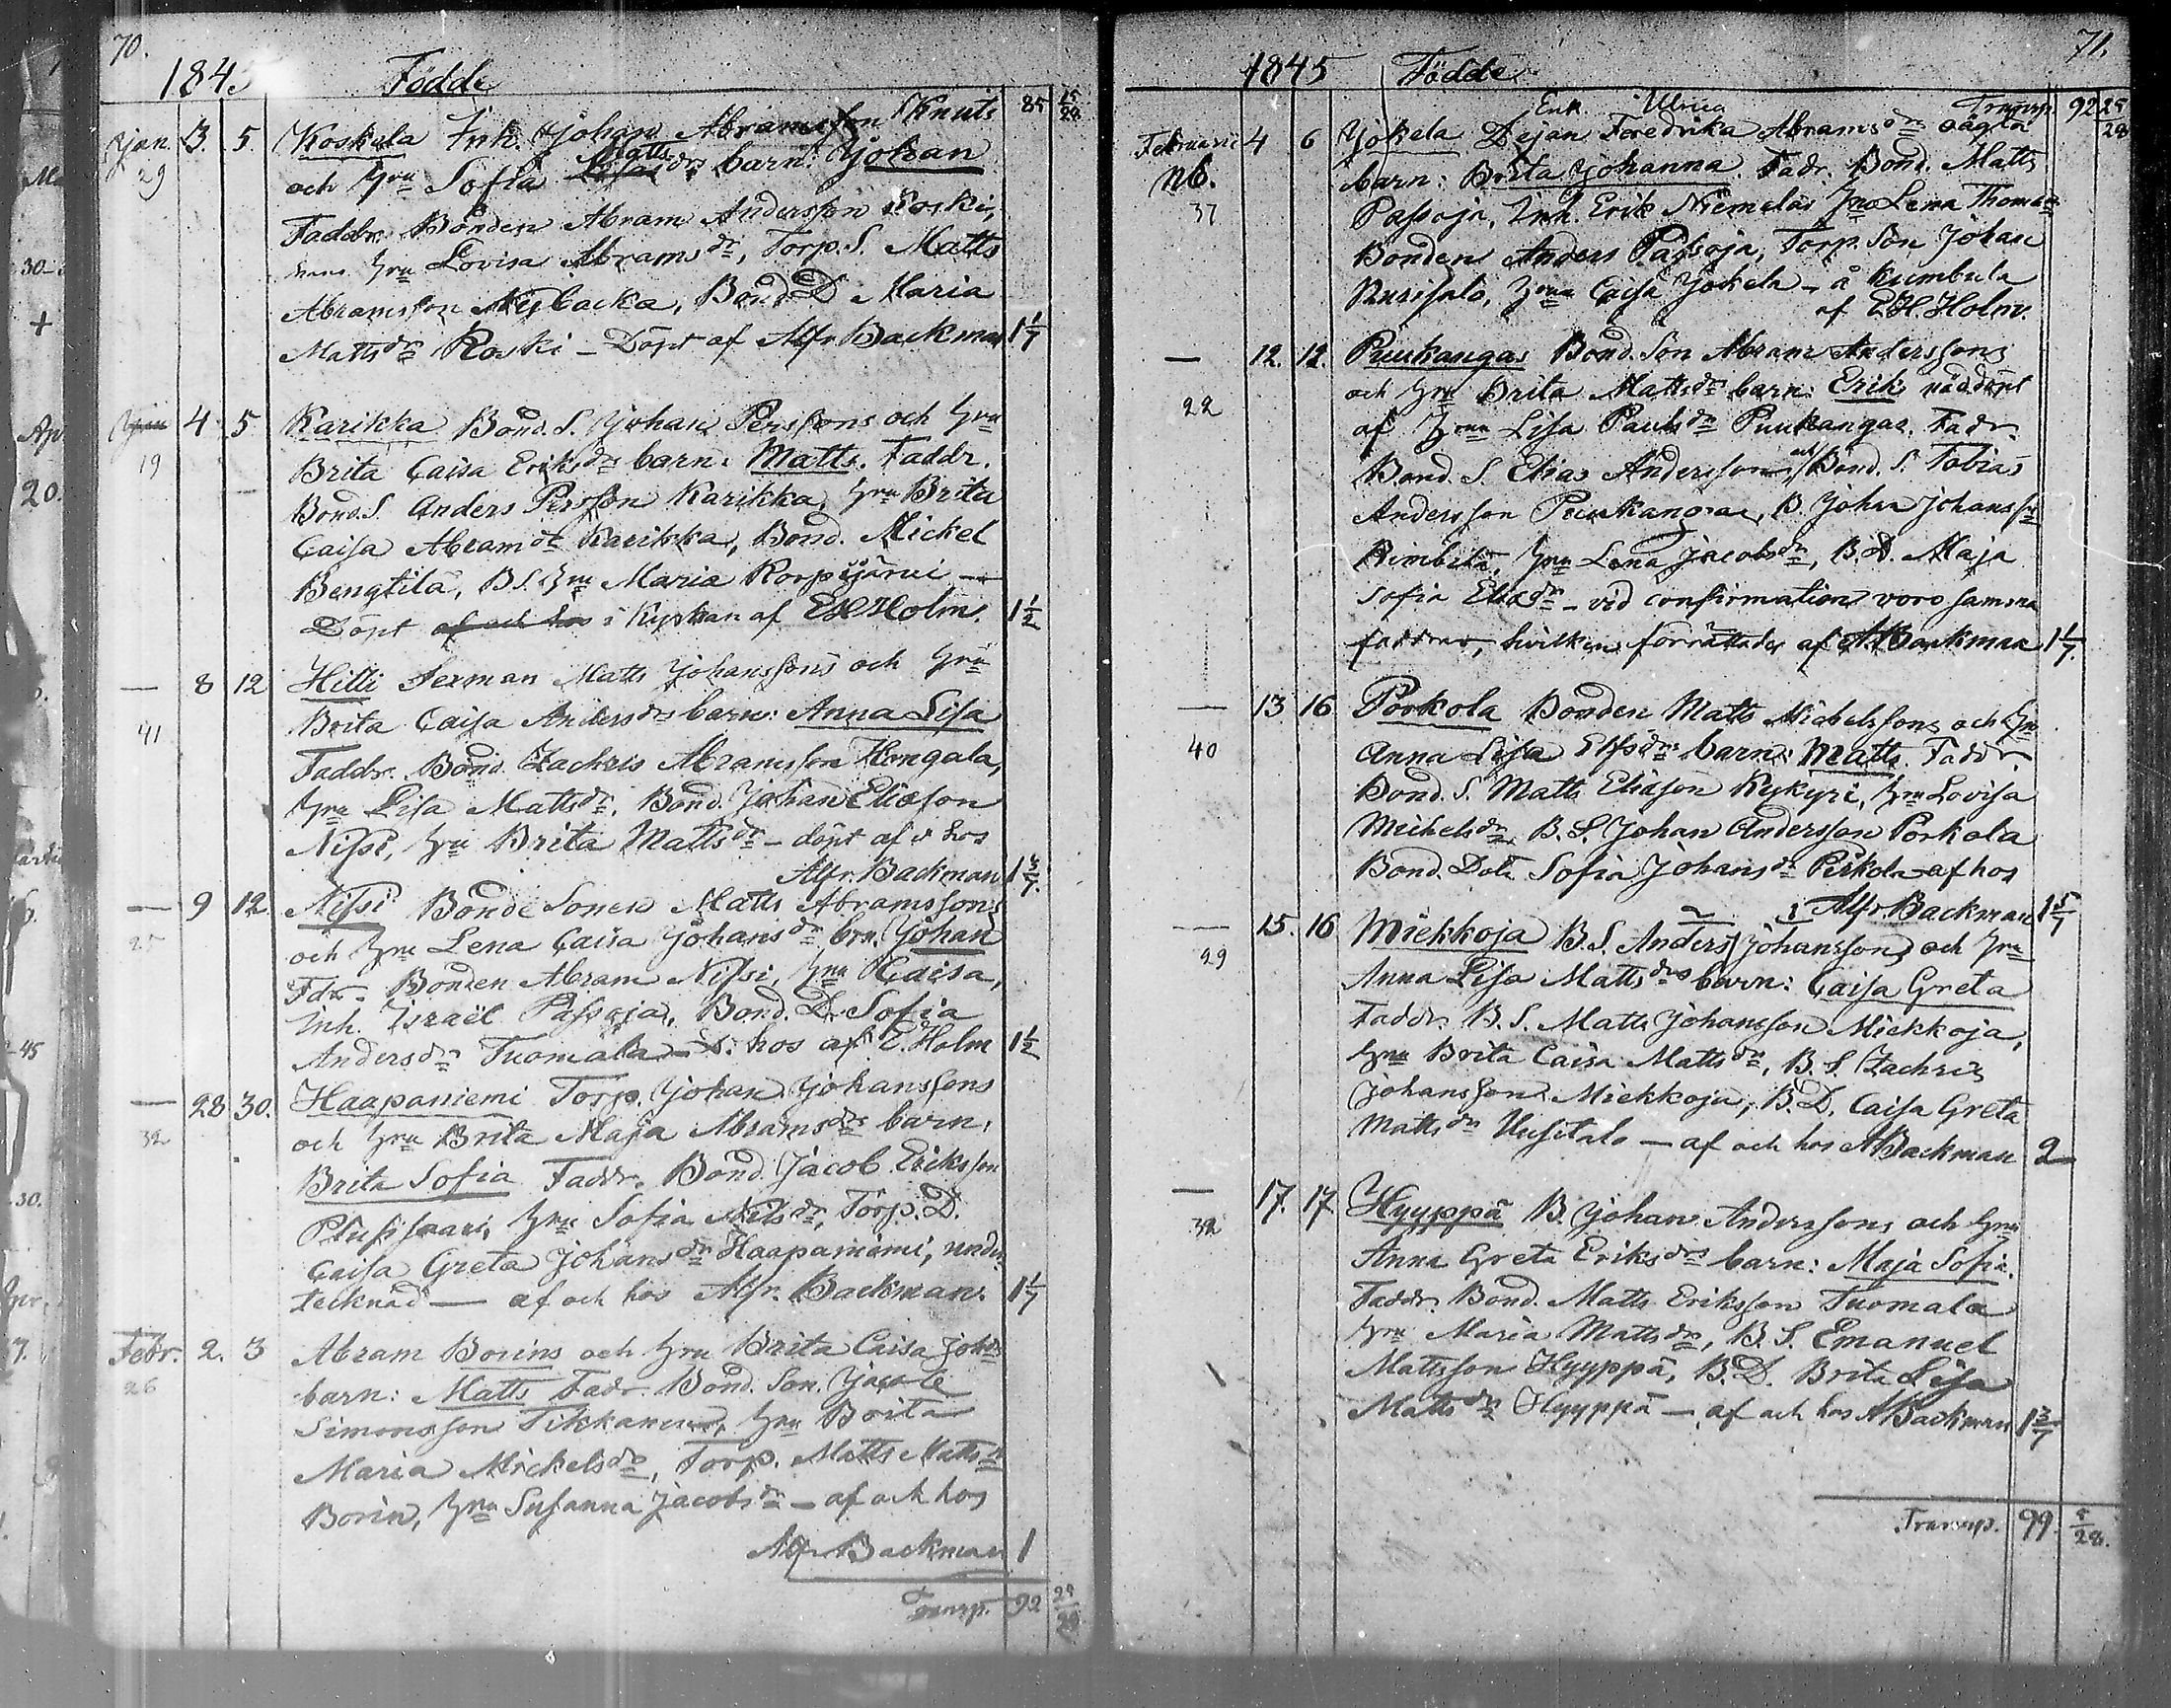 70.
1845 Födde
85 25/28
Jan. 3. 5. Koskela Inh. Johan Abramsson Knuts
29 och hru Sofia Matts drs barn: Johan
Faddr. Bonden Abram Andersson Koski,
hans hru Lovisa Abrams dr, Torp. S. Matts
Abramsson Nybacka, Bond. D. Maria
Matts dr Koski – Döpt af Alfr. Backman 1 1/7
4 5 Karikka Bond. S. Johan Perssons och hru
19 Brita Caisa Eriks drs barn: Matts. Faddr.
Bond. S. Anders Persson Karikka, hru Brita
Caisa Abram dr Karikka, Bond. Mickel
Bengtilä, B.S. hru Maria Korpijärvi –
Döpt af och hos i Kyrkan af EH Holm. 1 1/2
— 8 12 Hitti Matts Johanssons och hru
41 Brita Caisa Anders drs barn: Anna Lisa
Faddr. Bond. Zachris Abramsson Hongala,
hru Lisa Matts dr, Bond. Johan Eliasson
Nissi, hru Brita Matts dr – döpt af o hos
Alfr. Backman 1 4/7.
— 9 12 Nissi Bonde Sonen Matts Abramssons
25 och hru Lena Caisa Johans drs brn. Johan
Fdr. Bonden Abram Nissi, hru Caisa,
Inh. Israël Passoja, Bond. D. Sofia
Anders dr Tuomala – d. hos af E. Holm 1 1/2
— 28 30. Haapaniemi Torp. Johan Johanssons
32 och hru Brita Maja Abrams drs barn,
Brita Sofia Faddr. Bond. Jacob Eriksson
hru Sofia Nils dr, Torp. D.
Caisa Greta Johans dr Haapaniemi, under-
tecknad — af och hos Alfr. Backman. 1 1/7
Febr. 2. 3 Abram Borins och hru Brita Caisa Joh drs
26 barn: Matts Fadr. Bond. Son. Jacob
Simonsson Tikkanen, hru Brita
Maria Mickels dr, Torp. Matts Matts
Borin, hru Susanna Jacobs dr – af och hos
Alfr Backman 1
Transp. 92 25/28
71.
1845 Födde
Enk. Ulrica Transp. 92 25/28
Februarii 4 6 Jokela Pejan Fredrika Abrams drs oägta
nb. barn: Brita Johanna. Fadr. Bond. Matts
37 Passoja, Inh. Erik Niemeläs hru Lena Thomas
Bonden Anders Passoja, Torp. Son Johan
hru Caisa Jokela – å Kumbula
af E.H. Holm.
— 12. 12. Puukangas Bond. Son Abram Anderssons
22 och hru Brita Matts drs barn: Erik nöddöpt
af hru Lisa Pauls dr Puukangas. Fadr.
Bond. S. Elias Andersson, och Bond. S. Tobias
Andersson Puukangas, B. Johan Johansson
hru Lena Jacobs dr, B.D. Maja
Sofia Elias dr – vid confirmation voro samma
faddrar, hvilken förrättades af A Backman 1 1/7.
— 13 16 Porkola Bonden Matts Michelssons och hru
40 Anna Lisa Elfs drs barn: Matts. Faddr.
Bond. S. Matts Eliasson Kykyri, hru Lovisa
Michels dr, B. S. Johan Andersson Porkola
Bond. Dotr Sofia Johans dr Porkola – af hos
Alfr. Backman 1 5/7
— 15. 16 Miekkoja B.S. Anders Johanssons och hru
29 Anna Lisa Matts drs barn: Caisa Greta
Faddr. B. S. Matts Johansson Miekkoja,
hru Brita Caisa Matts dr, B. S. Zachris
Johansson Miekkoja, B.D. Caisa Greta
Matts dr Uusitalo — af och hos A Backman 2
— 17. 17 Hyyppä B. Johan Anderssons och hru
32 Anna Greta Eriks drs barn: Maja Sofia.
Faddr. Bond. Matts Eriksson Tuomala
hru Maria Matts dr, B. S. Emanuel
Mattsson Hyyppä, B.D. Brita Lisa
Matts dr Hyyppä — af och hos A Backman 1 3/7
Transp. 99 5/28.